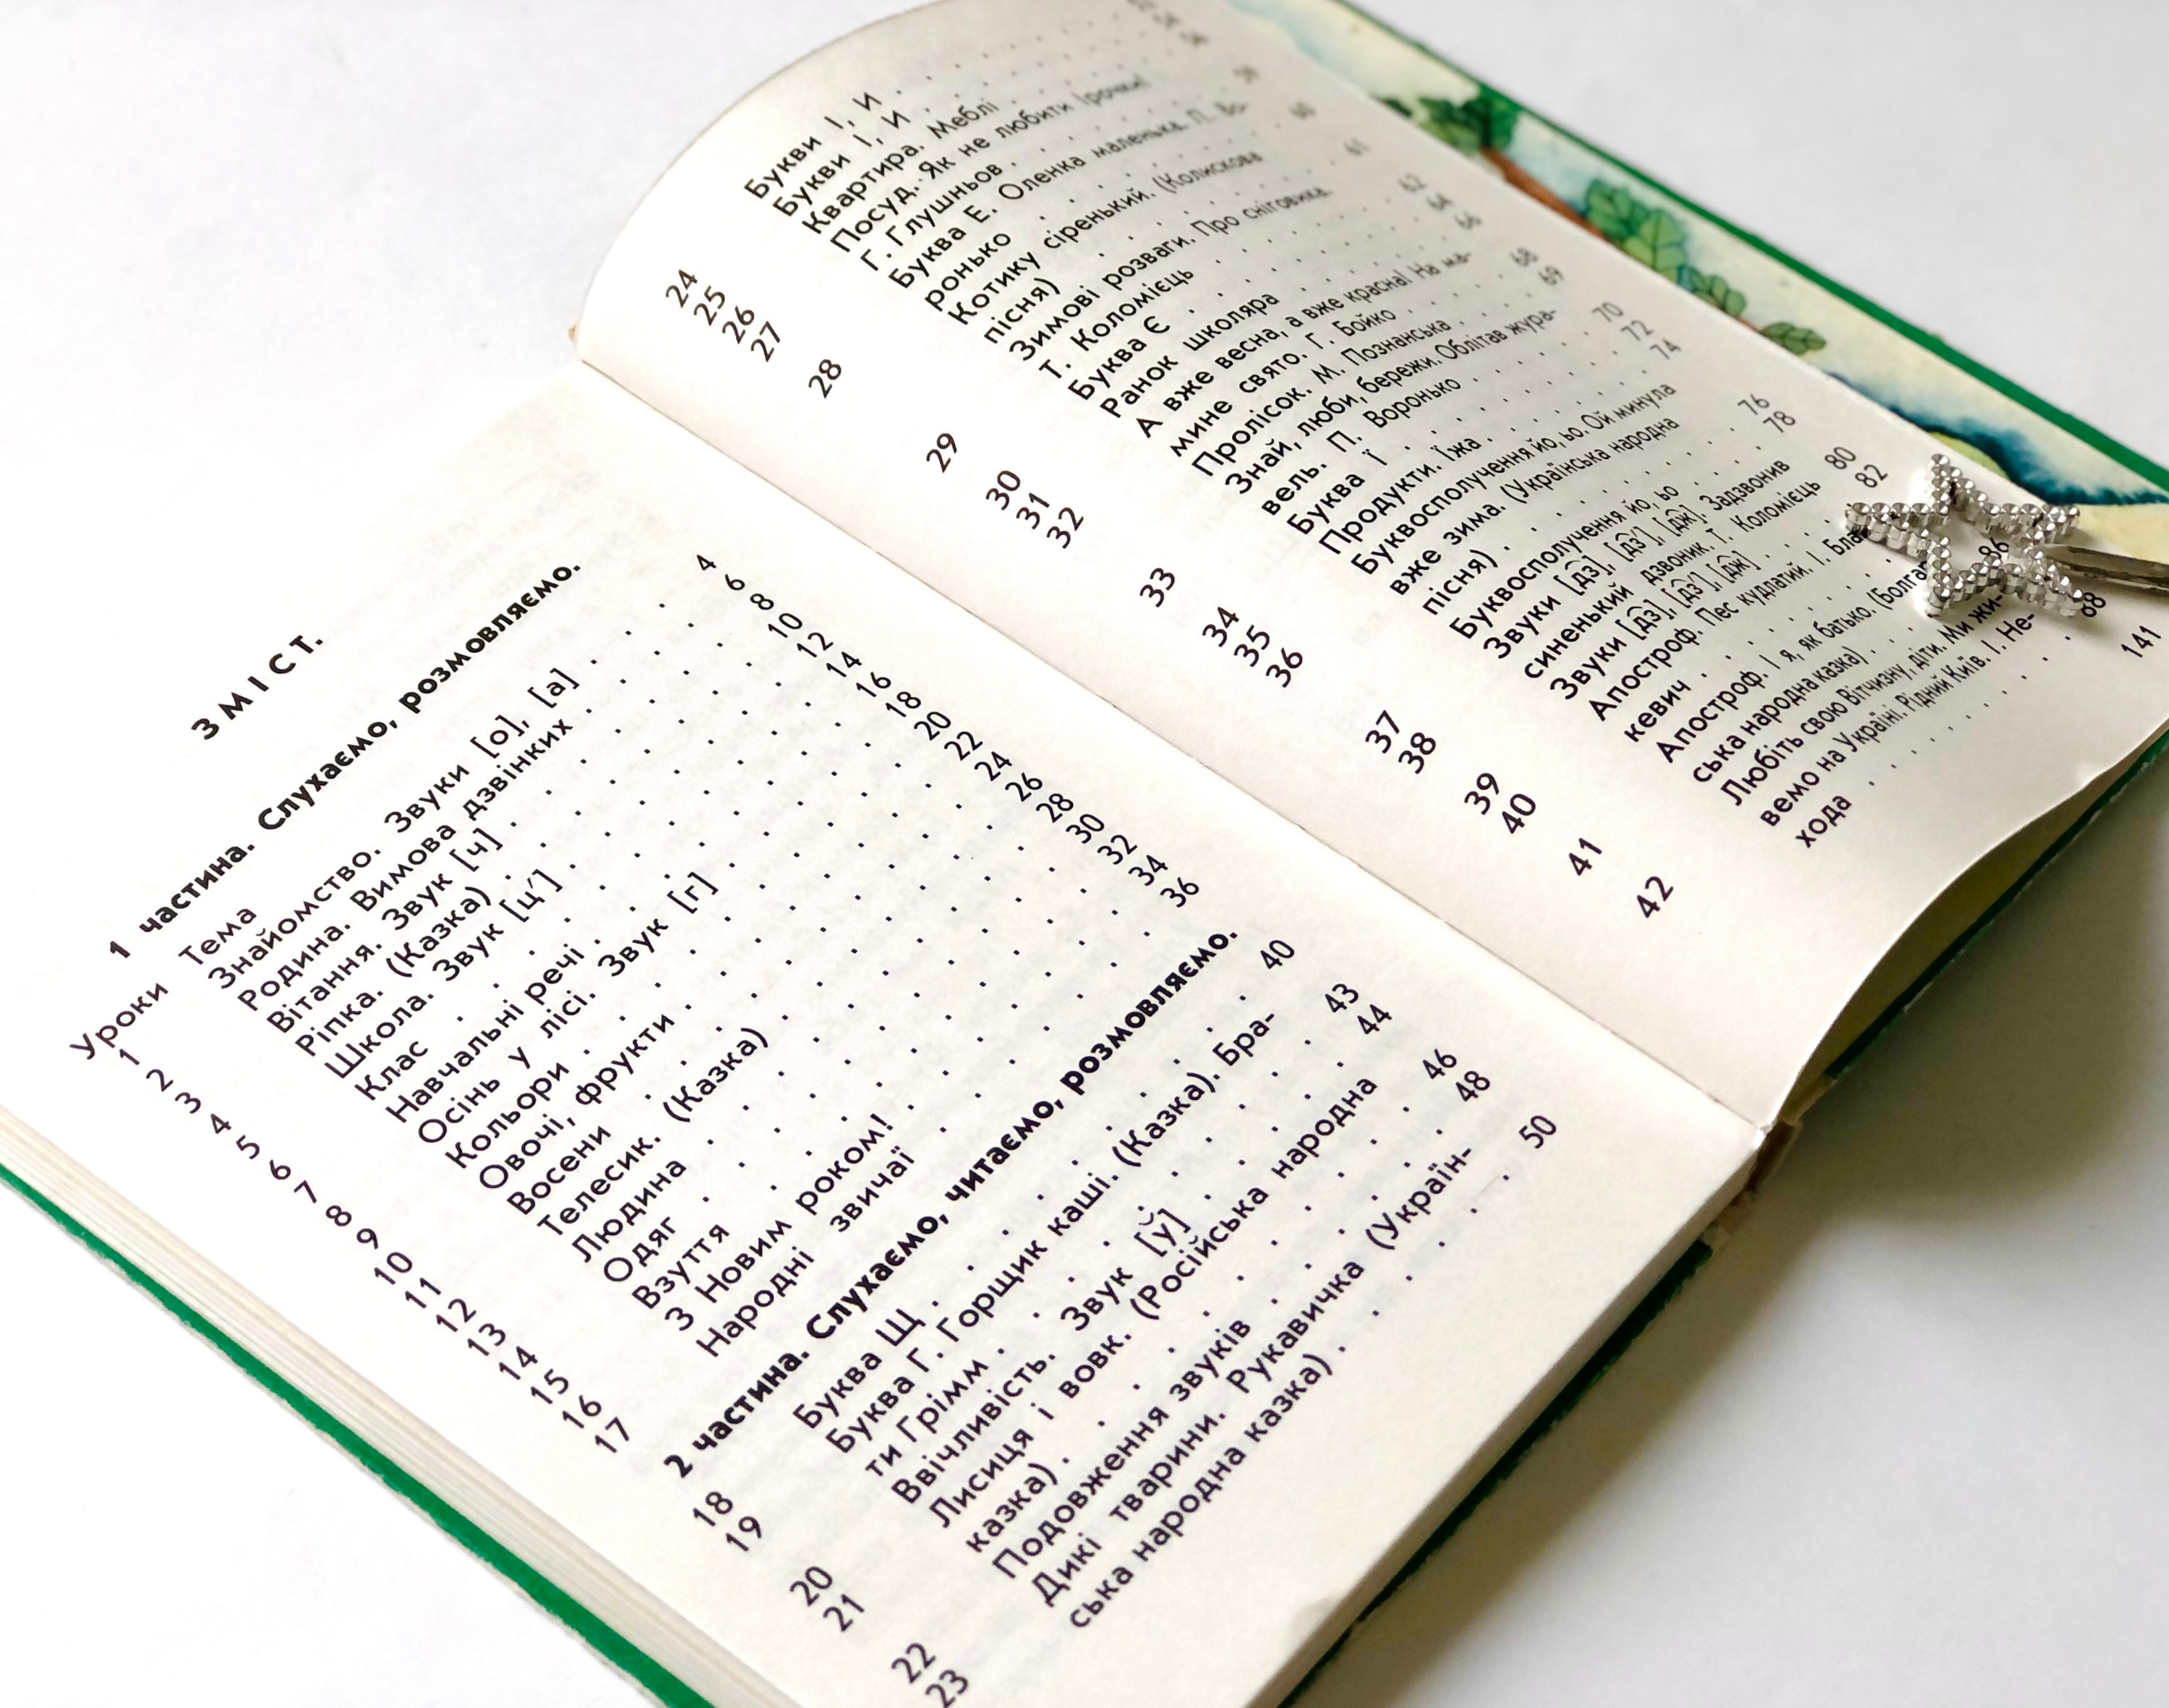 ЗМІСТ.
1 частина. Слухаємо, розмовляємо.
Уроки Тема
1 Знайомство. Звуки [о], [а] . . 4
2 Родина. Вимова дзвінких . . . 6
3 Вітання. Звук [ч] . . . 8
4 Ріпка. (Казка) . . . 10
5 Школа. Звук [ц′] . . . 12
6 Клас . . . 14
7 Навчальні речі . . . 16
8 Осінь у лісі. Звук [г] . . . 18
9 Кольори . . . 20
10 Овочі, фрукти . . . 22
11 Восени . . . 24
12 Телесик. (Казка) . . . 26
13 Людина . . . 28
14 Одяг . . . 30
15 Взуття . . . 32
16 З Новим роком! . . . 34
17 Народні звичаї . . . 36
2 частина. Слухаємо, читаємо, розмовляємо.
18 Буква Щ . . . 40
19 Буква Ґ. Горщик каші. (Казка). Бра-
ти Грімм . . . 43
20 Ввічливість. Звук [ў] . . . 44
21 Лисиця і вовк. (Російська народна
казка) . . . 46
Подовження звуків . . . 48
22
23 Дикі тварини. Рукавичка (Україн-
ська народна казка) . . . 50
24 Букви І, И . . .
25 Букви І, И . . . 54
26 Квартира. Меблі . . . 56
27 Посуд. Як не любити Ірочки!
Г. Глушньов . . .
28 Буква Е. Оленка маленька. П. Во-
ронько . . . 60
Котику сіренький. (Колискова
пісня) . . . 61
29 Зимові розваги. Про сніговика.
Т. Коломієць . . . 62
30 Буква Є . . . 64
31 Ранок школяра . . . 66
32 А вже весна, а вже красна! На ма-
мине свято. Г. Бойко . . . 68
Пролісок. М. Познанська . . . 69
33 Знай, люби, бережи. Облітав жура-
вель. П. Воронько . . . 70
34 Буква Ї . . . 72
35 Продукти. Їжа . . . 74
36 Буквосполучення йо, ьо. Ой минула
вже зима. (Українська народна
пісня) . . . 76
37 Буквосполучення йо, ьо . . . 78
38 Звуки [д͡з], [д͡з′], [д͡ж]. Задзвонив
синенький дзвоник. Т. Коломієць 80
39 Звуки [д͡з], [д͡з′], [д͡ж] . . . 82
40 Апостроф. Пес кудлатий. І.
кевич . . .
41 Апостроф. І я, як батько.
ська народна казка) . . . 86
42 Любіть свою Вітчизну, діти. Ми жи-
вемо на Україні. Рідний Київ. І. Не-
хода . . . 88
141